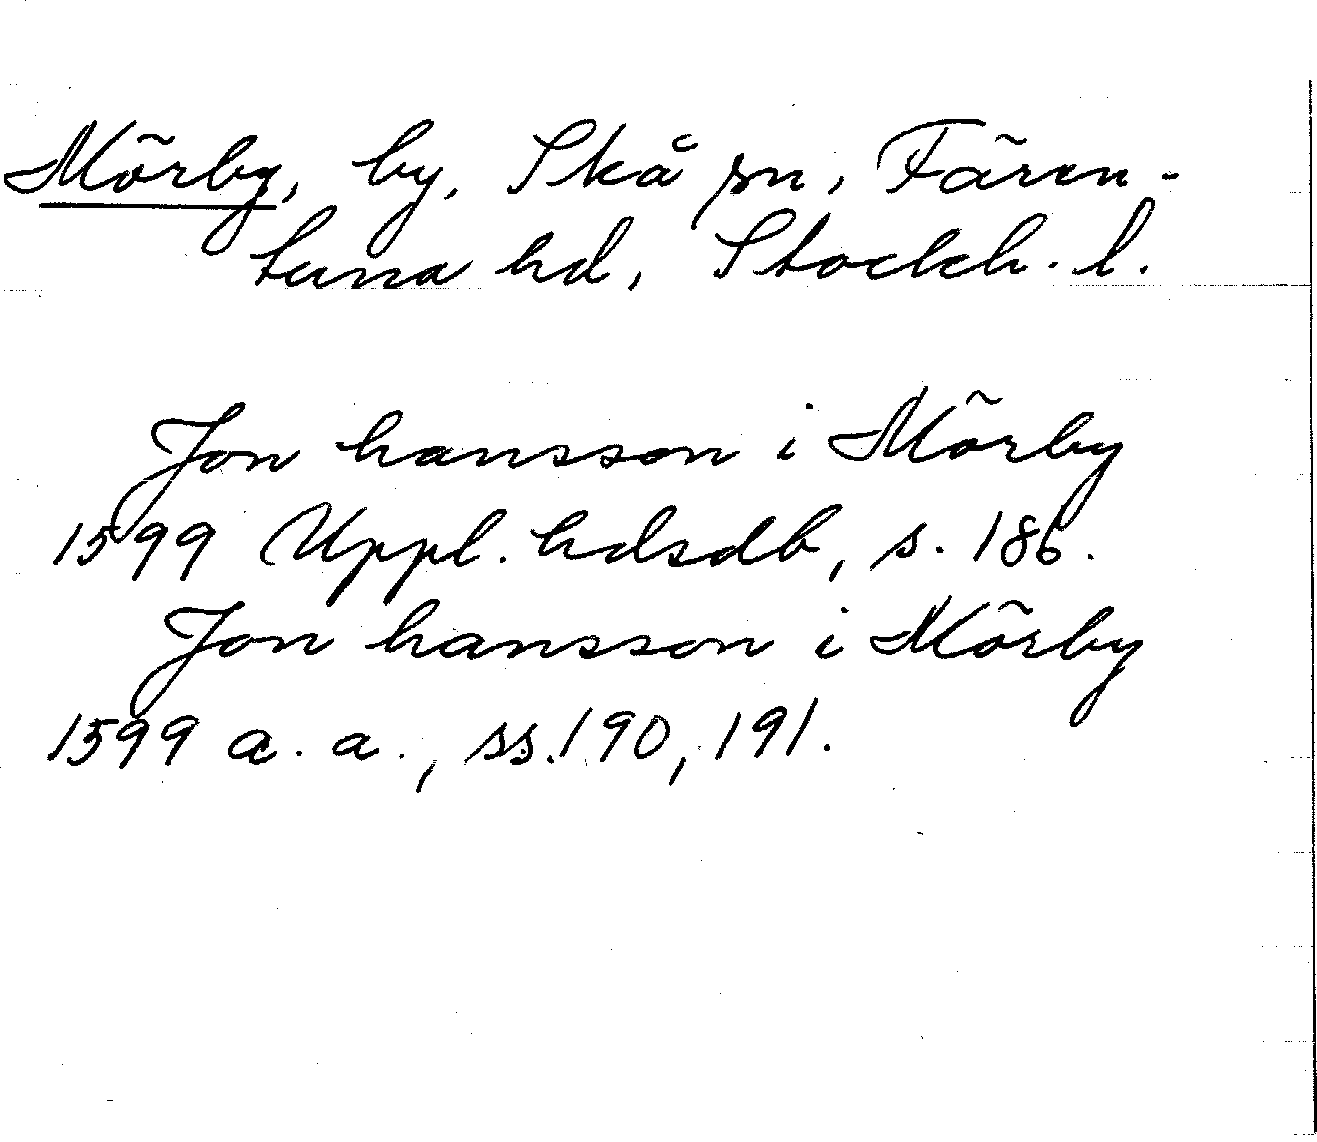 Mörby, by, Skå sn, Fären-
tuna hd, Stockh. l.
Jon hansson i Mörby
1599 Uppl. hdsdb, s. 186.
Jon hansson i Mörby
1599 a. a., ss. 190, 191.